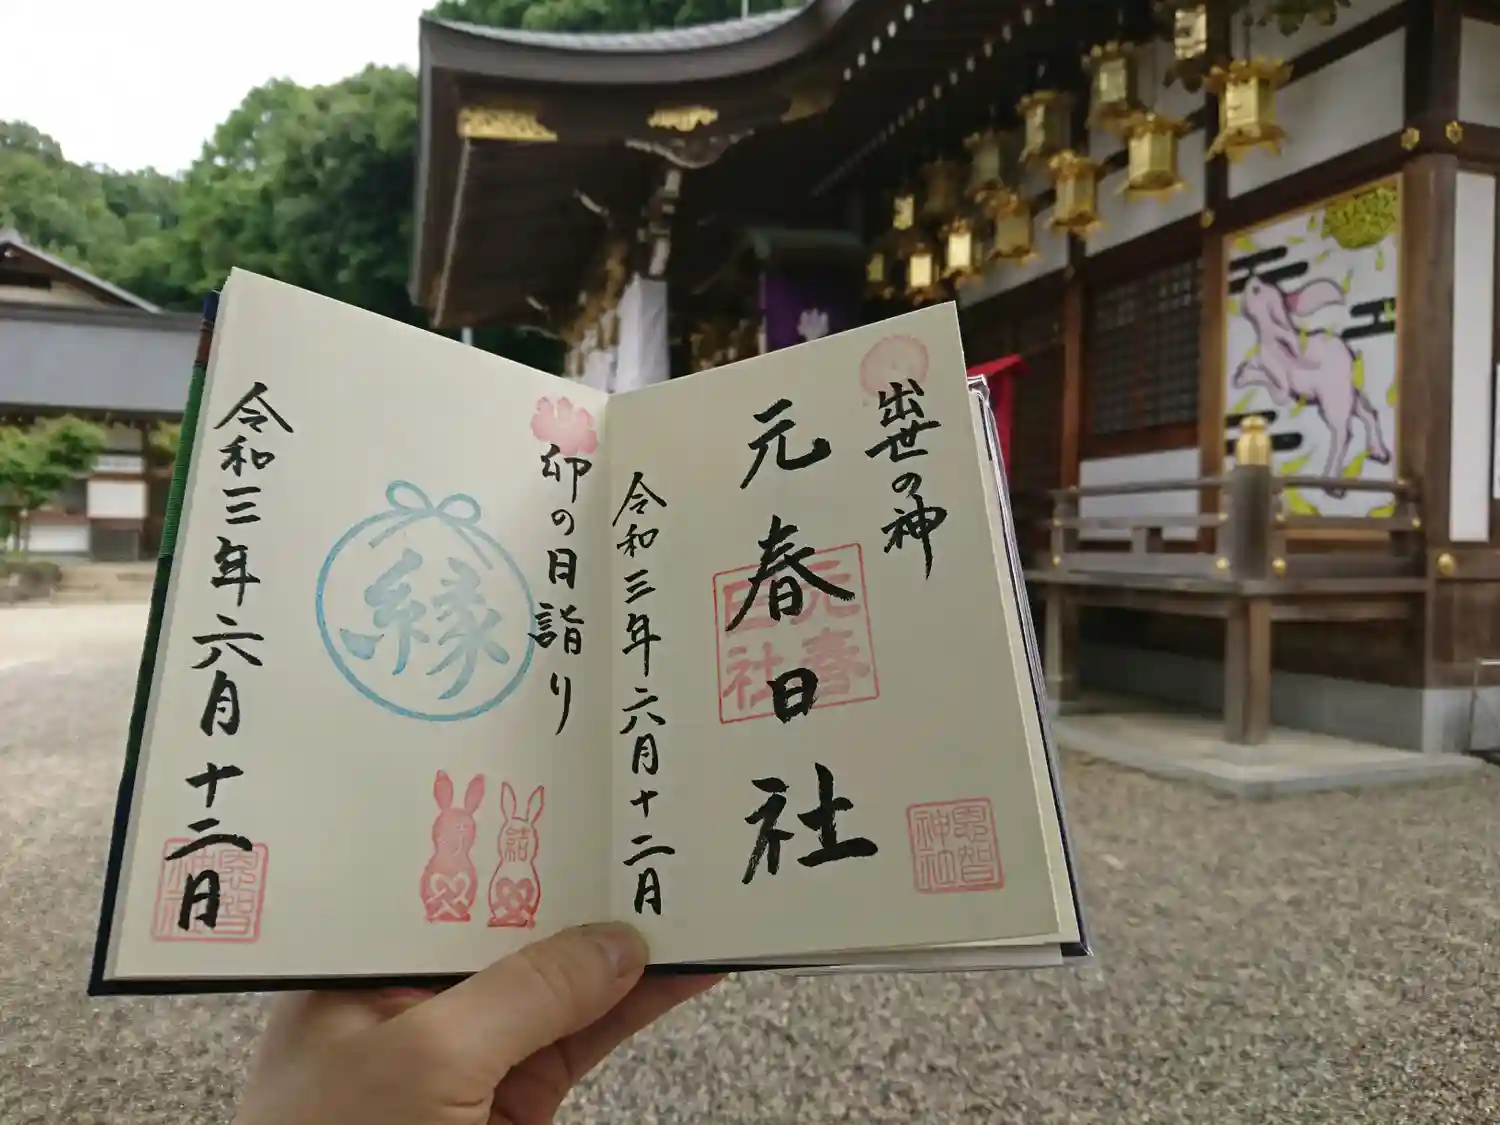 出世の神
元春日社
元春
日社
恩智
神社
令和三年六月十二日
卯の日詣り
縁
結
令和三年六月十二日
恩智
神社